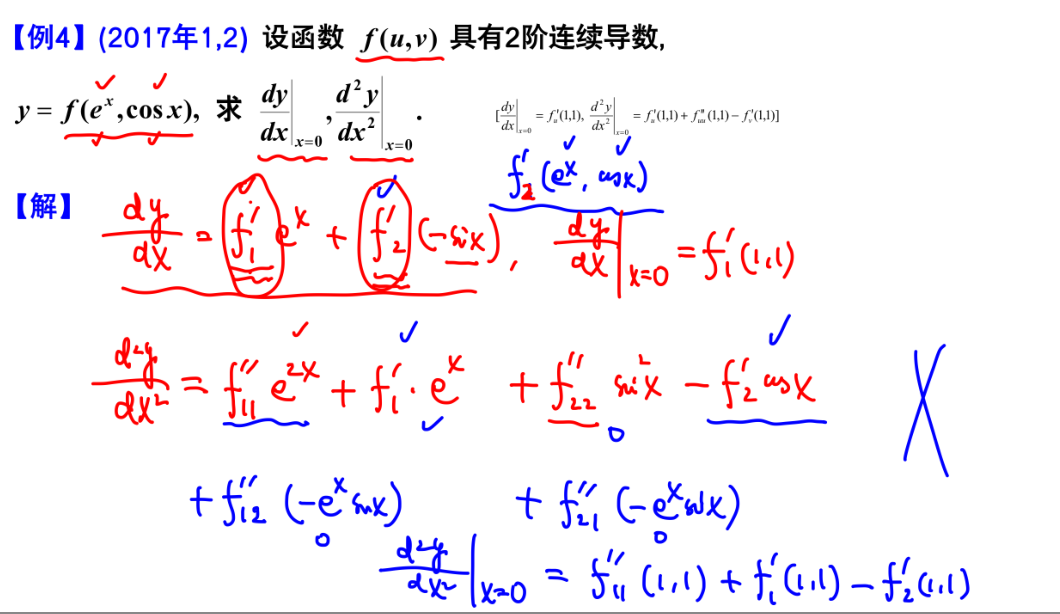 【例4】(2017年1,2) 设函数 f(u,v) 具有2阶连续导数,
y = f(e^x,cos x), 求 dy/dx|_{x=0}, d²y/dx²|_{x=0}.
[dy/dx|_{x=0} = f'_u(1,1), d²y/dx²|_{x=0} = f'_u(1,1) + f''_{uu}(1,1) − f'_v(1,1)]
f'_2(e^x, cosx)
【解】 dy/dx = f'_1 e^x + f'_2 (−sinx), dy/dx|_{x=0} = f'_1(1,1)
d²y/dx² = f''_{11} e^{2x} + f'_1·e^x + f''_{22} sin²x − f'_2 cosx
0
+ f''_{12} (−e^x sinx) + f''_{21} (−e^x sinx)
0 0
d²y/dx²|_{x=0} = f''_{11}(1,1) + f'_1(1,1) − f'_2(1,1)